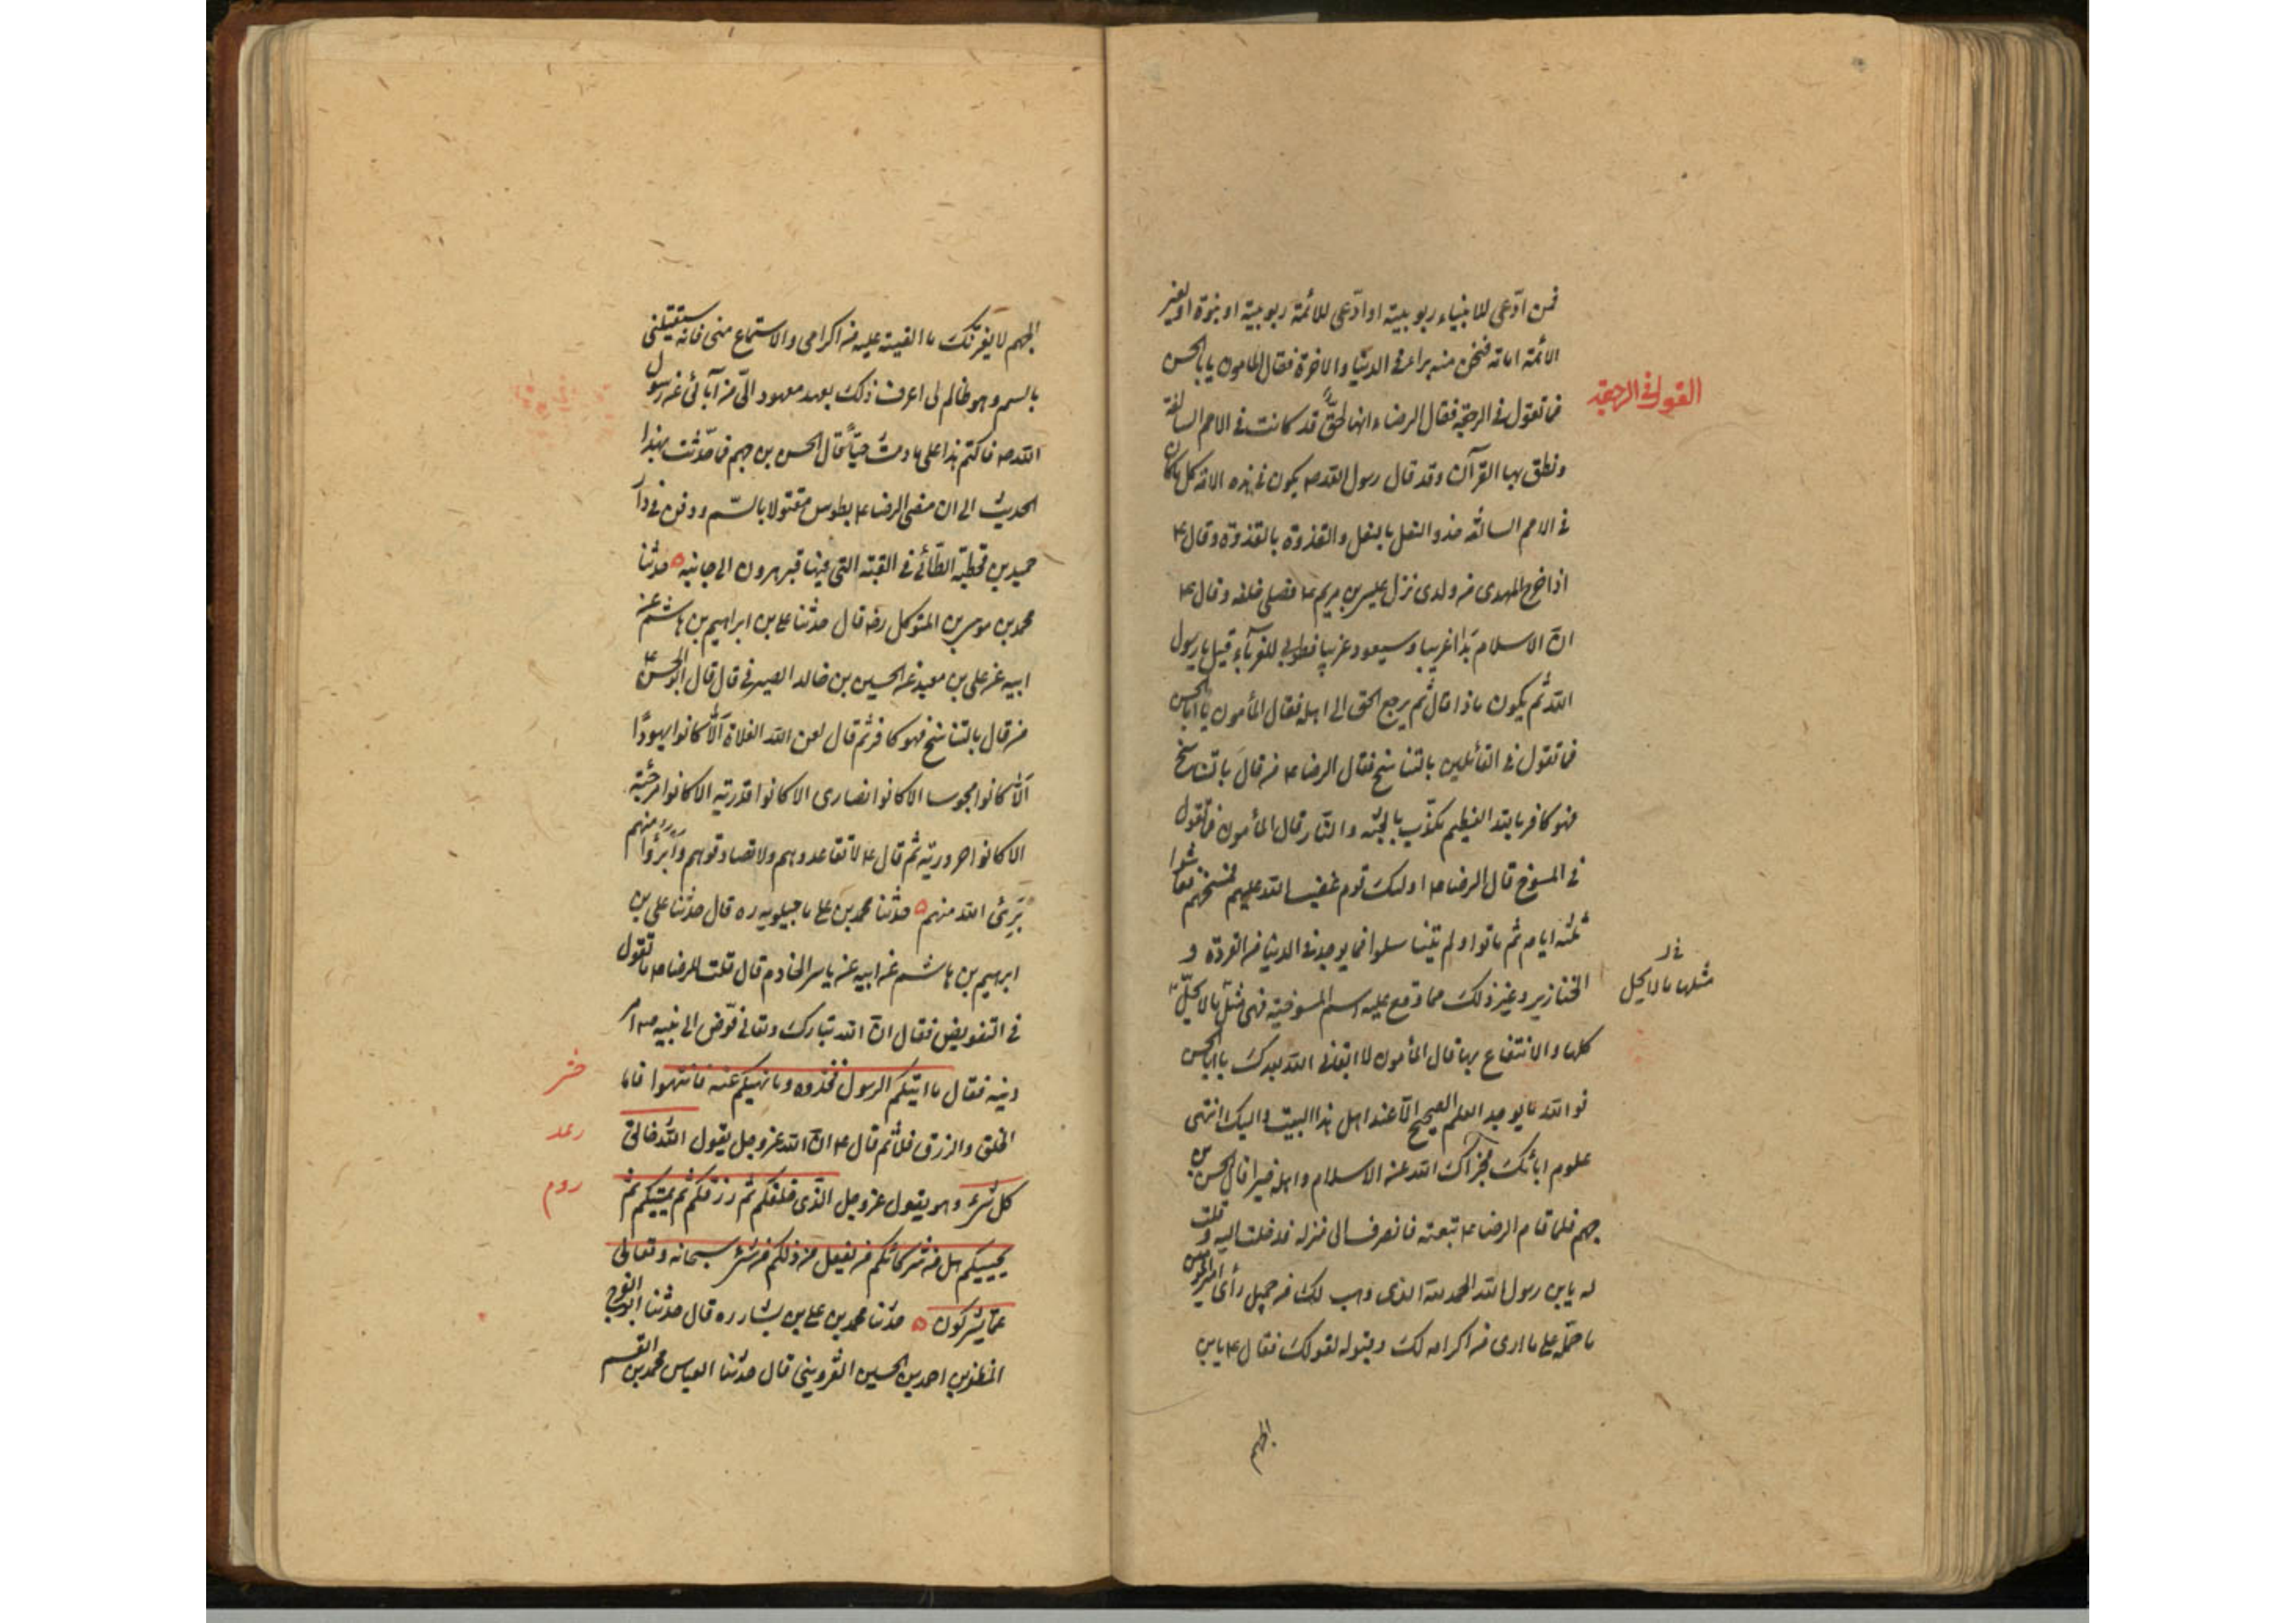 فمن ادّعى للانبياء ربوبية او ادّعى للائمة ربوبية او نبوة او لغير
الائمة امامة فنحن منه براء في الدنيا والاخرة فقال المامون يابا الحسن
القول في الرجعة
فما تقول في الرجعة فقال الرضا ء انها لحقّ قد كانت في الامم السالفة
ونطق بها القرآن وقد قال رسول الله ص يكون في هذه الامة كل ما كان
في الامم السالفة حذو النعل بالنعل والقذوة بالقذوة وقال ع
اذا خرج المهدى من ولدى نزل عيسى بن مريم ع فصلى خلفه وقال ع
انّ الاسلام بَدَا غريبا وسيعود غريبا فطوبى للغرباء قيل يا رسول
الله ثم يكون ماذا قال ثم يرجع الحق الى اهله فقال المأمون يا ابا الحسن
فما تقول في القائلين بالتناسخ فقال الرضا ع من قال بالتناسخ
فهو كافر بالله العظيم مكذّب بالجنّه والنّار قال المأمون فما تقول
في المسوخ قال الرضا ع اولئك قوم غضب الله عليهم فمسخهم فعاشوا
ثلثه ايام ثم ماتوا ولم يتناسلوا فما يوجد في الدنيا من القردة و
الخنازير وغير ذلك مما وقع عليه اسم المسوخية فهى مثل ما لا يحلّ
مثلها ما لا يحل
اكلها والانتفاع بها قال المأمون لا ابقانى الله بعدك يا ابا الحسن
فوالله ما يوجد العلم الصحيح الّا عند اهل هذا البيت واليك انتهى
علوم ابائك فجزاك الله عن الاسلام واهله خيرا قال الحسن بن
جهم فلما قام الرضا ع تبعته فانصرف الى منزله فدخلت اليه وقلت
له يابن رسول الله الحمد لله الذى وهب لك من جميل رأى امير المؤمنين
ما حمله على ما ارى من اكرامه لك وقبوله لقولك فقال ع يابن
الجهم
الجهم لا يغرّنّك ما الفيته عليه من اكرامى والاستماع منى فانه سيقتلنى
بالسم وهو ظالم لى اعرف ذلك بعهد معهود الىّ من آبائى عن رسول
الله ص فاكتم هذا على ما دمتُ حيّاً قال الحسن بن جهم فما حدّثت بهذا
الحديث الى ان مضى الرضا ع بطوس مقتولا بالسّم ودفن في دار
حميد بن قحطبة الطائى في القبّة التى فيها قبر هرون الى جانبه ه حدثنا
محمد بن موسى بن المتوكل رض قال حدثنا على بن ابراهيم بن هاشم عن
ابيه عن على بن معبد عن الحسين بن خالد الصيرفى قال قال ابو الحسن ع
من قال بالتناسخ فهو كافر ثم قال لعن الله الغلاة ألّا كانوا يهودًا
ألّا كانوا مجوسا الا كانوا نصارى الا كانوا قدرية الا كانوا مرجئة
الا كانوا حرورية ثم قال ع لا تقاعدوهم ولا تصادقوهم وابرؤا منهم
بَرِئَ الله منهم ه حدثنا محمد بن على ماجيلويه ره قال حدثنا على بن
ابرهيم بن هاشم عن ابيه عن ياسر الخادم قال قلت للرضا ع ما تقول
في التفويض فقال انّ الله تبارك وتعالى فوّض الى نبيه ص امر
دينه فقال ما اتيكم الرسول فخذوه وما نهيكم عنه فانتهوا فاما
حشر
الخلق والرزق فلا ثم قال ع انّ الله عز وجل يقول الله خالق
رعد
كل شئ وهو يقول عز وجل الّذى خلقكم ثم رزقكم ثم يميتكم ثم
روم
يحييكم هل من شركائكم من يفعل من ذلكم من شئ سبحانه وتعالى
عمّا يشركون ه حدثنا محمد بن على بن بشار ره قال حدثنا ابو الفرج
المظفر بن احمد بن الحسين القزوينى قال حدثنا العباس محمد بن القسم